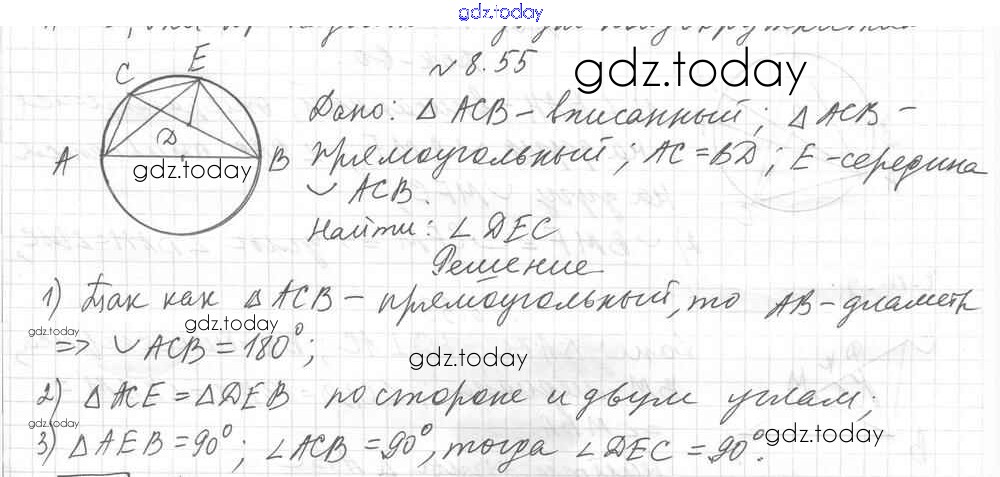 gdz.today
№ 8.55
gdz.today
C E
Дано: △ ACB – вписанный; △ ACB –
A D B прямоугольный; AC = BD; E – середина
gdz.today
◡ ACB.
Найти: ∠ DEC
Решение
1) Так как △ ACB – прямоугольный, то AB – диаметр
gdz.today
gdz.today
=> ◡ ACB = 180°;
gdz.today
2) △ ACE = △ DEB по стороне и двум углам;
gdz.today
3) △ AEB = 90°; ∠ ACB = 90°, тогда ∠ DEC = 90°.
gdz.today